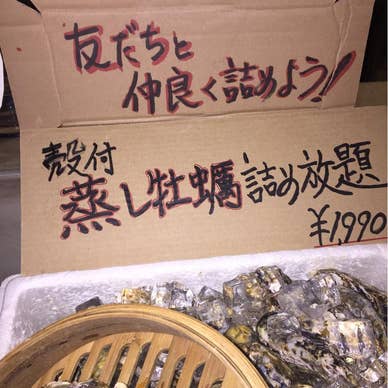 友だちと
仲良く詰めよう!
殻付
蒸し牡蠣詰め放題
¥1,990